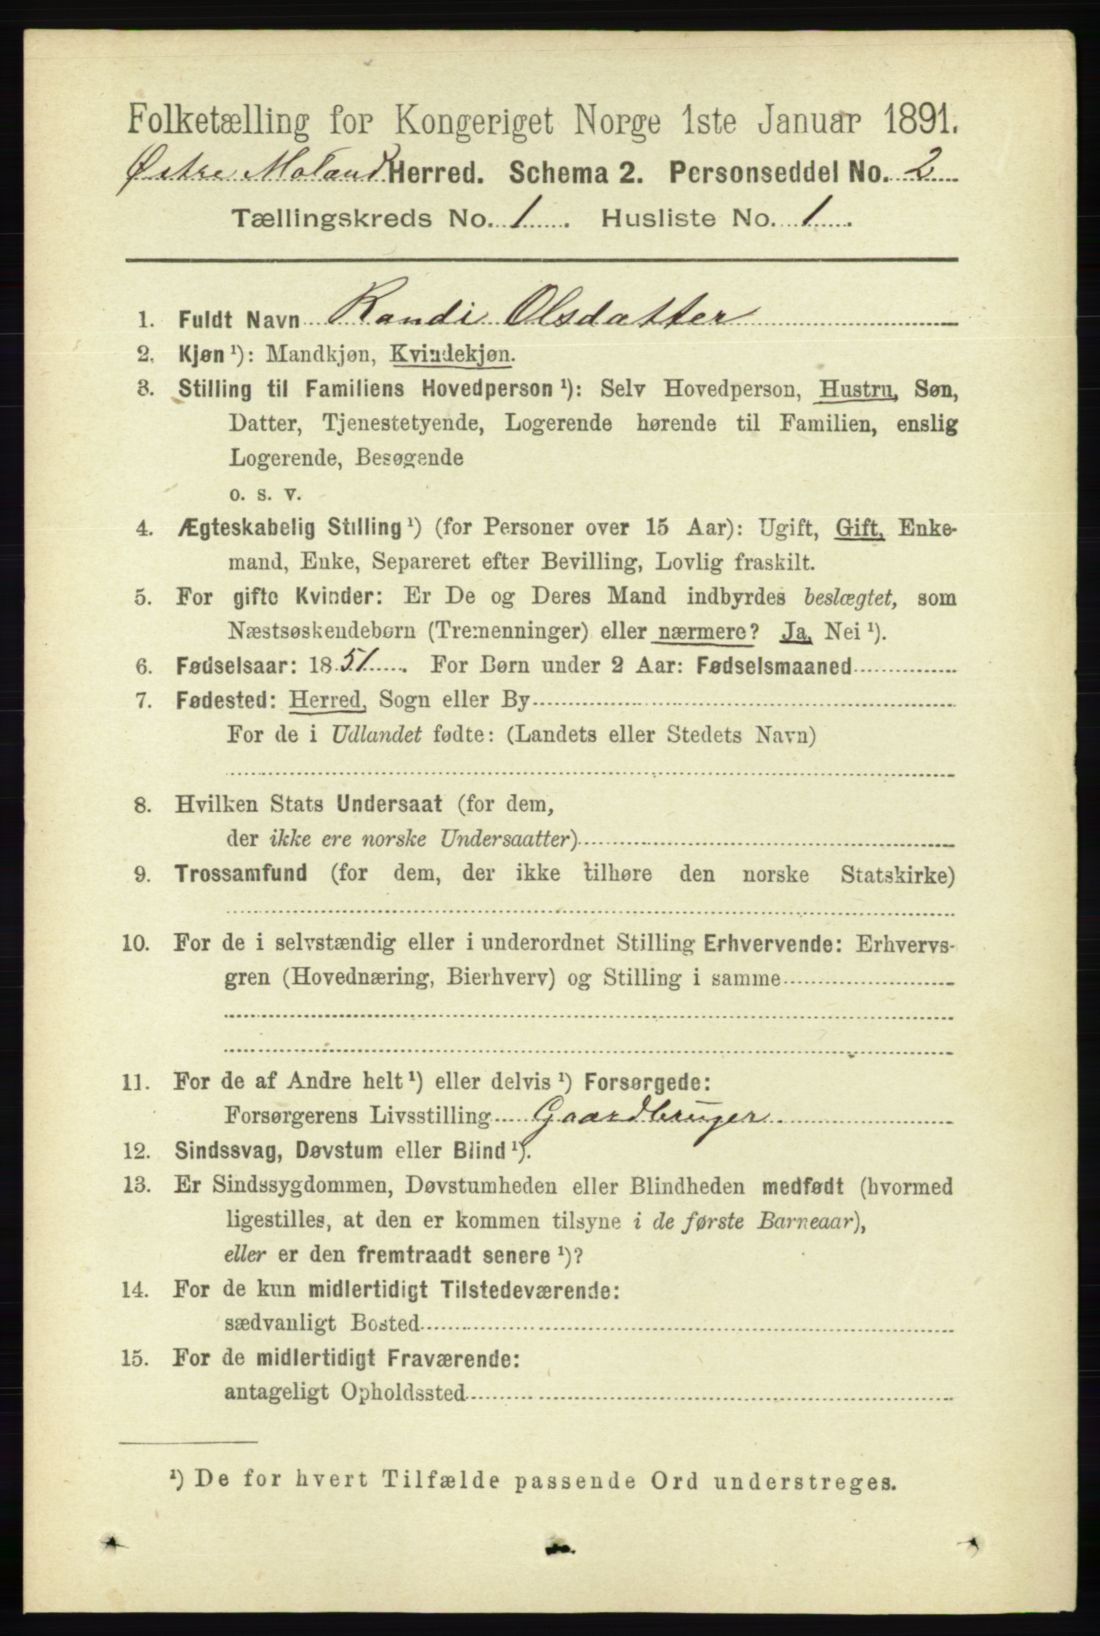 Folketælling for Kongeriget Norge 1ste Januar 1891.
Østre Moland Herred. Schema 2. Personseddel No. 2
Tællingskreds No. 1. Husliste No. 1.
1. Fuldt Navn Randi Olsdatter
2. Kjøn ¹): Mandkjøn, Kvindekjøn.
3. Stilling til Familiens Hovedperson ¹): Selv Hovedperson, Hustru, Søn,
Datter, Tjenestetyende, Logerende hørende til Familien, enslig
Logerende, Besøgende
o. s. v.
4. Ægteskabelig Stilling ¹) (for Personer over 15 Aar): Ugift, Gift, Enke-
mand, Enke, Separeret efter Bevilling, Lovlig fraskilt.
5. For gifte Kvinder: Er De og Deres Mand indbyrdes beslægtet, som
Næstsøskendebørn (Tremenninger) eller nærmere? Ja, Nei ¹).
6. Fødselsaar: 1851. For Børn under 2 Aar: Fødselsmaaned
7. Fødested: Herred, Sogn eller By
For de i Udlandet fødte: (Landets eller Stedets Navn)
8. Hvilken Stats Undersaat (for dem,
der ikke ere norske Undersaatter)
9. Trossamfund (for dem, der ikke tilhøre den norske Statskirke)
10. For de i selvstændig eller i underordnet Stilling Erhvervende: Erhvervs-
gren (Hovednæring, Bierhverv) og Stilling i samme
11. For de af Andre helt ¹) eller delvis ¹) Forsørgede:
Forsørgerens Livsstilling Gaardbruger
12. Sindssvag, Døvstum eller Blind ¹).
13. Er Sindssygdommen, Døvstumheden eller Blindheden medfødt (hvormed
ligestilles, at den er kommen tilsyne i de første Barneaar),
eller er den fremtraadt senere ¹)?
14. For de kun midlertidigt Tilstedeværende:
sædvanligt Bosted
15. For de midlertidigt Fraværende:
antageligt Opholdssted
¹) De for hvert Tilfælde passende Ord understreges.